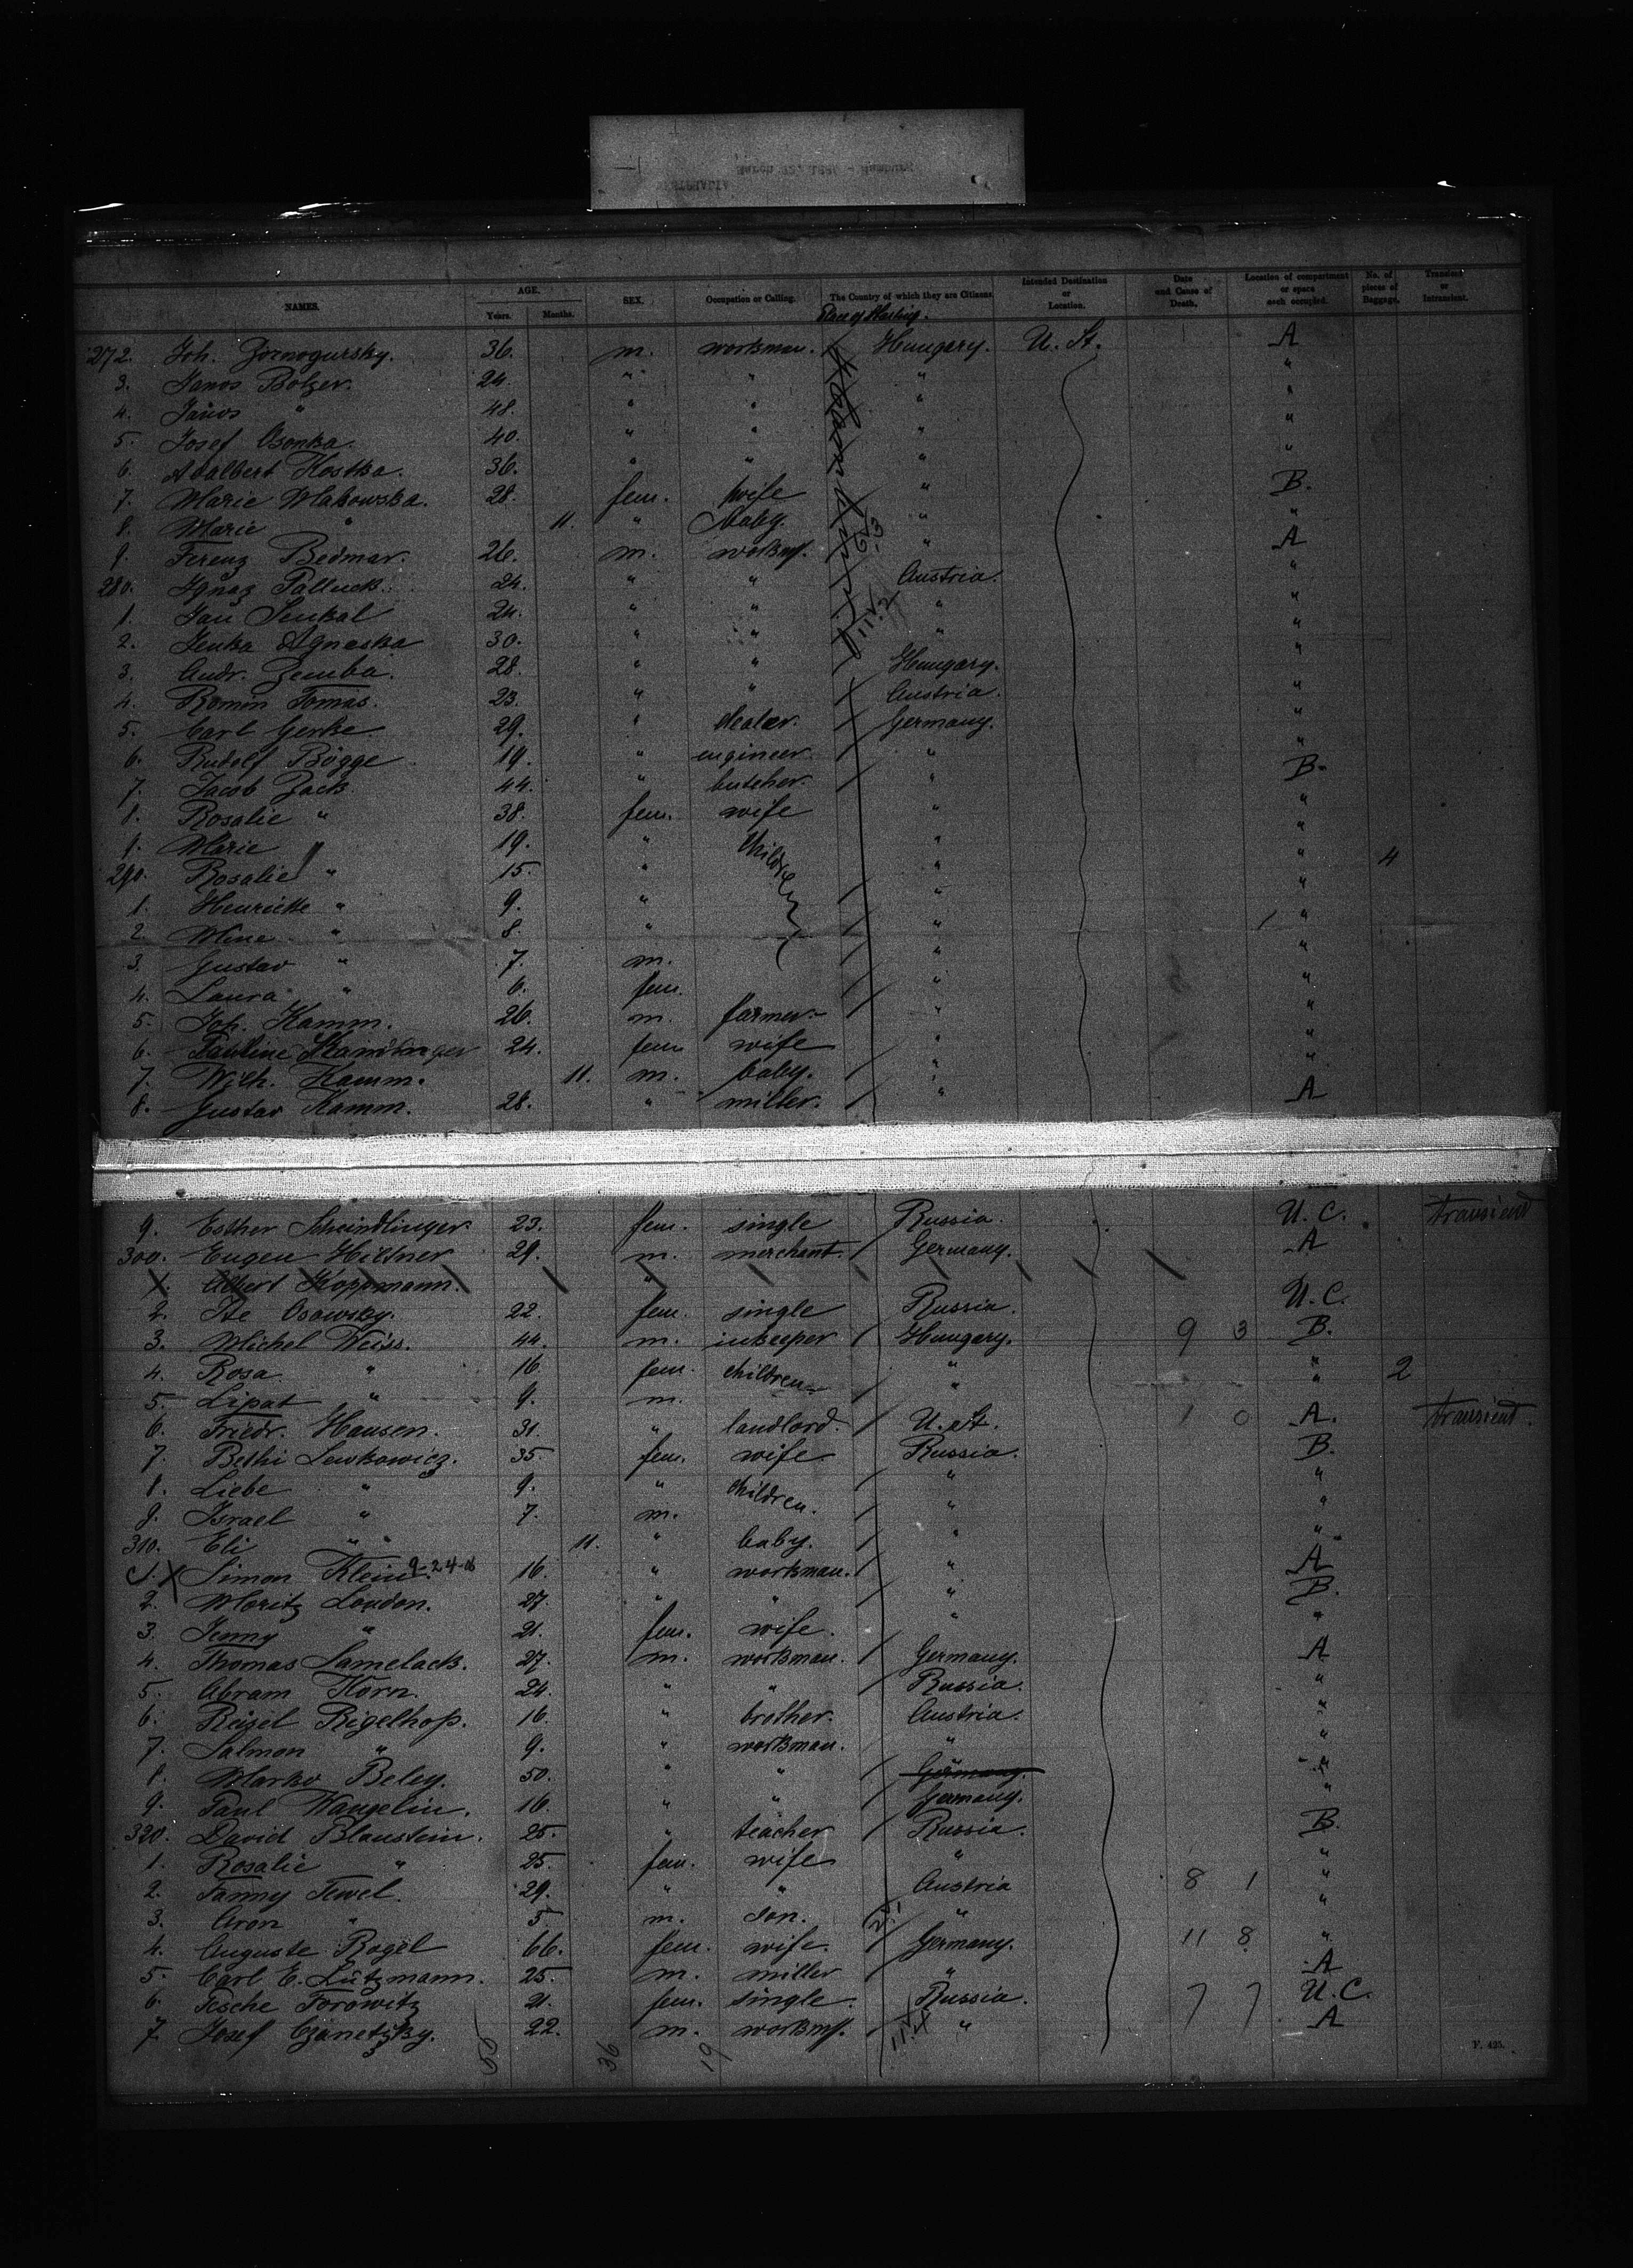 NAMES. AGE. Years. Months. SEX. Occupation or Calling. The Country of which they are Citizens. Intended Destination or Location. Date and Cause of Death. Location of compartment or space each occupied. No. of pieces of Baggage. Transient or Intransient.
272. Joh. Gornogursky. 36. m. workman. / Hungary. U. St. A
3. Janos Bolzer. 24. " " " "
4. Janos " 48. " " " "
5. Josef Osonka. 40. " " " "
6. Adalbert Kostka. 36. " " " "
7. Marie Makowska. 28. fem. wife " B.
8. Marie " 11. " baby. " "
9. Ferenz Bedmar. 26. m. workm. / " A
280. Ignaz Palluck. 24. " " / Austria. "
1. Jan Senkal 24. " " / " "
2. Jenka Agneska 30. " " " "
3. Andr. Zemba. 28. " " / Hungary. "
4. Romin Tomas. 23. " " / Austria. "
5. Carl Gerke. 29. " dealer. / Germany. "
6. Rudolf Bögge 19. " engineer. / " "
7. Jacob Jack. 44. " butcher. / " B.
8. Rosalie " 38. fem. wife " "
9. Marie " 19. " children " "
290. Rosalie " 15. " " " 4
1. Henriette " 9. " / " "
2. Mine " 8. " / " "
3. Gustav " 7. m. / " "
4. Laura " 6. fem. / " "
5. Joh. Kamm. 26. m. farmer. / " "
6. Pauline 24. fem wife " "
7. Wilh. Kamm. 11. m. baby. / " "
8. Gustav Kamm. 28. " miller. / " A
9. Esther Scheindlinger. 23. fem. single Russia. U. C. transient
300. Eugen Hilsner 29. m. merchant. / Germany. A
X. Albert Koppmann. "
2. Ite Osowsky. 22. fem. single Russia. U. C.
3. Michel Weiss. 44. m. inkeeper / Hungary. 9 3 B.
4. Rosa. " 16. fem. children " " 2
5. Lipat " 9. m. / " "
6. Friedr. Hansen. 31. " landlord. / U. St. 1 0 A. transient.
7. Bethi Lewkowicz. 35. fem. wife Russia. B.
8. Liebe " 9. " children. / " "
9. Israel " 7. m. / " "
310. Eli " 11. " baby. / " "
1. X Simon Klein 9-24-06 16. " workman. / " A
2. Moritz London. 27. " " / " B.
3. Jenny " 21. fem. wife. " "
4. Thomas Samelack. 27. m. workman. / Germany. A
5. Abram Korn. 24. " " Russia. "
6. Reisel Rigelhop. 16. " brother. Austria. "
7. Salmon " 9. " workman. " "
8. Marko Beley. 50. " " / Germany. "
9. Paul Wangelin. 16. " " / Germany. "
320. David Blaustein. 25. " teacher / Russia. B.
1. Rosalie " 25. fem. wife " "
2. Fanny Tewel. 29. " " Austria 8 1 "
3. Aron " 5 m. son. / " "
4. Auguste Rogel 66. fem. wife. / Germany. 11 8 "
5. Carl E. Lützmann. 25. m. miller / " A
6. Tesche Torowitz 21. fem. single. Russia. 7 7 U. C.
7. Josef Czanetzky. 22. m. workm. / " A
50 36 19
F. 425.